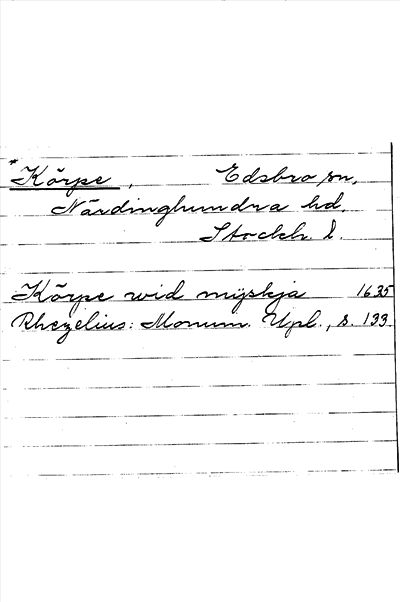 *Kärpe, Edsbro sn,
Närdinghundra hd.
Stockh. l.
Kärpe wid mÿskja 1635
Rhezelius: Monum. Upl., s. 133